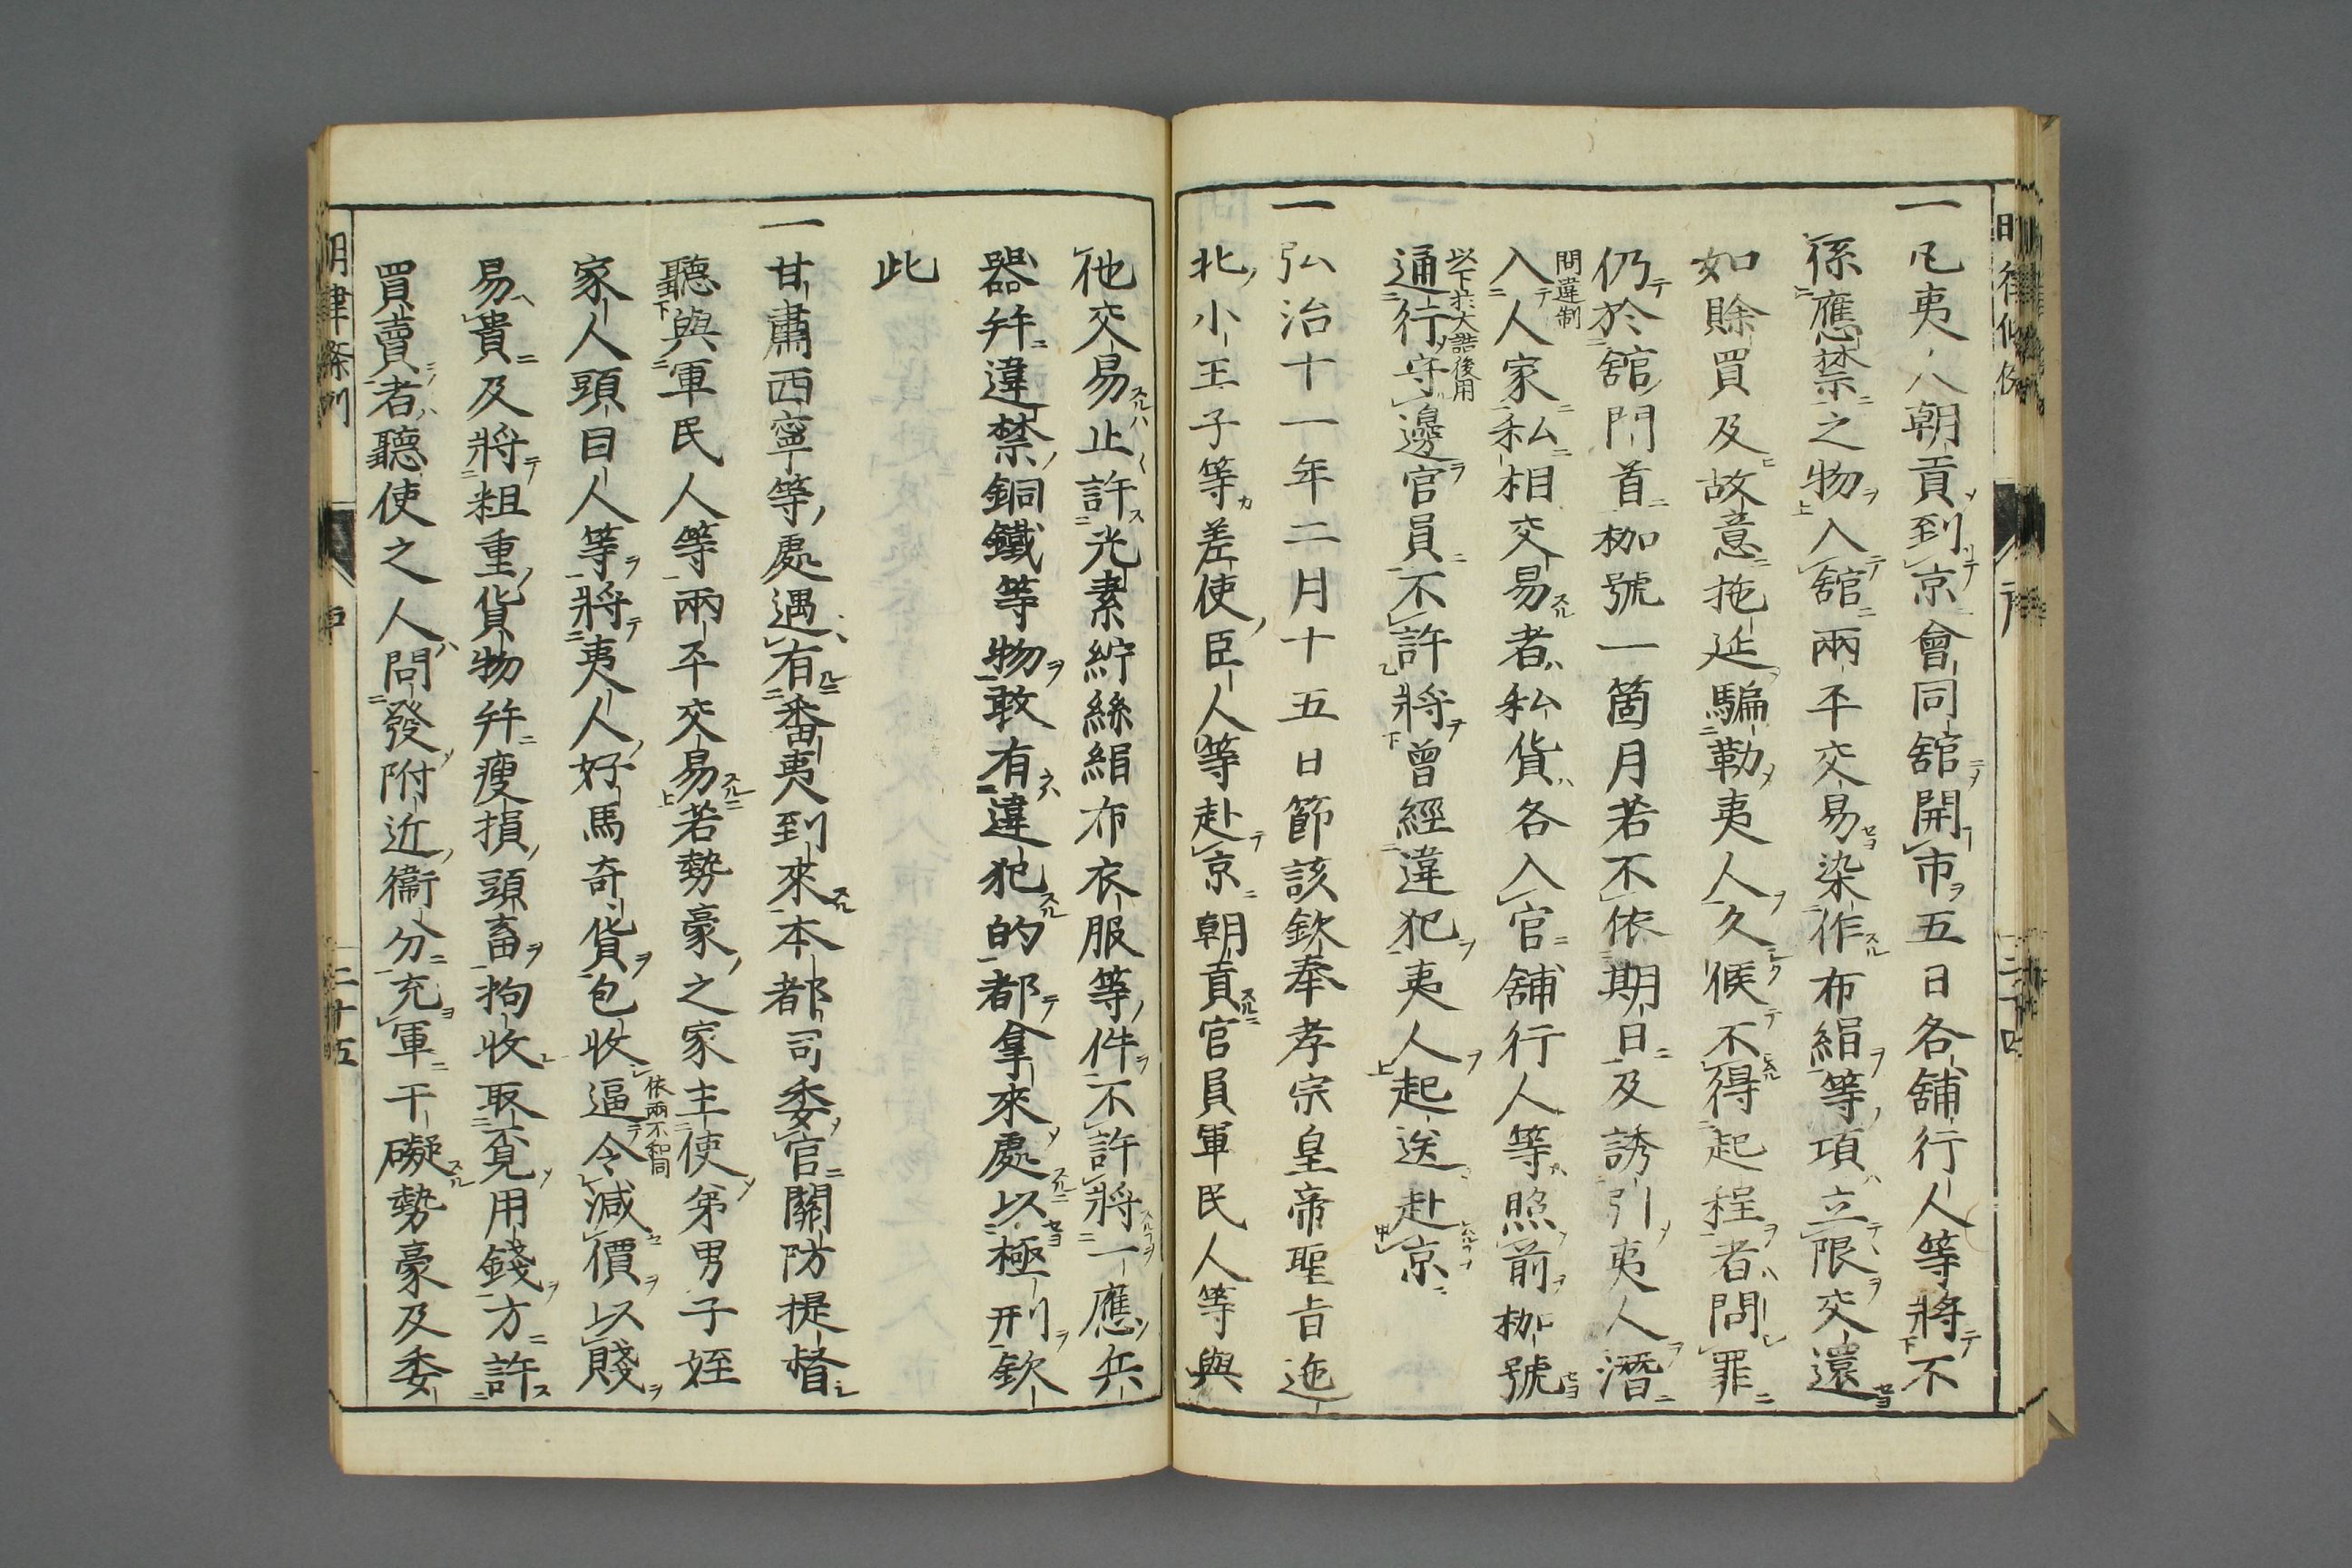 一凡夷人朝貢到京會同舘開市五日各舖行人等將不
係應禁之物入舘兩平交易染作布絹等項立限交還
如賖買及故意拖延騙勒夷人久候不得起程者問罪
仍於舘門首枷號一箇月若不依期日及誘引夷人潛
問違制
入人家私相交易者私貨各入官舖行人等照前枷號
以下於大誥後用
通行守邊官員不許將曾經違犯夷人起送赴京
一弘治十一年二月十五日節該欽奉孝宗皇帝聖旨迤
北小王子等差使臣人等赴京朝貢官員軍民人等與
他交易止許光素紵絲絹布衣服等件不許將一應兵
器并違禁銅鐵等物敢有違犯的都拿來處以極刑欽
此
一甘肅西寧等處遇有番夷到來本都司委官關防提督
聽與軍民人等兩平交易若勢豪之家主使弟男子姪
家人頭目人等將夷人好馬奇貨包收逼令減價以賤
依兩不和同
易貴及將粗重貨物并瘦損頭畜拘收取覓用錢方許
買賣者聽使之人問發附近衞分充軍干礙勢豪及委
明律條例
戸
二十五